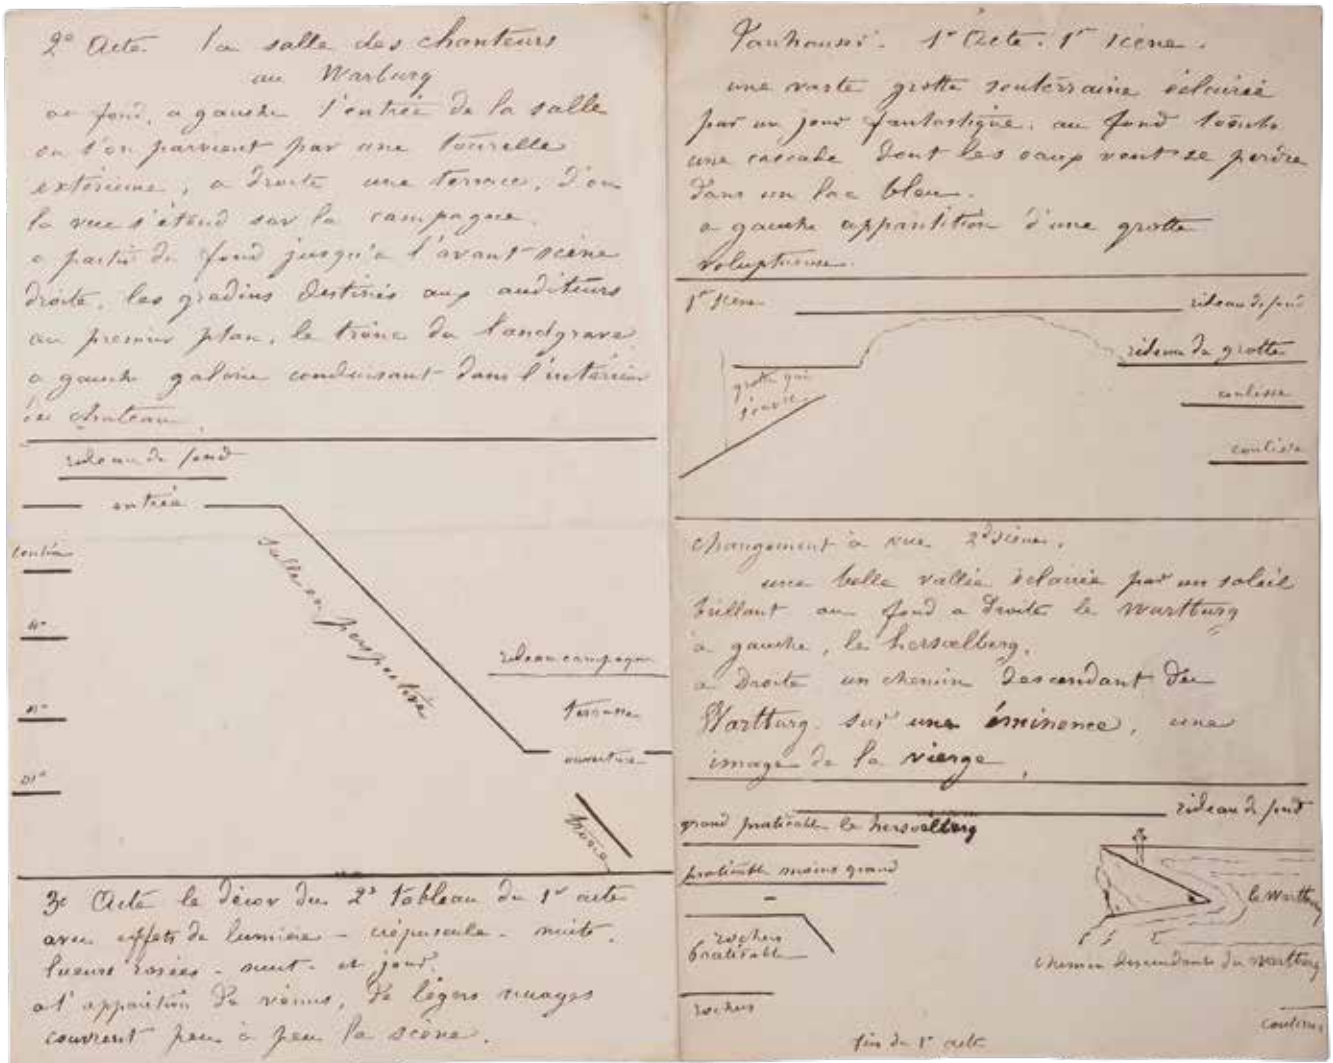 2e Acte. la salle des chanteurs
au Warburg
au fond, a gauche l'entrée de la salle
ou l'on parvient par une tourelle
extérieure, a droite une terrace, d'ou
la vue s'étend sur la campagne.
a partir du fond jusqu'a l'avant-scène
droite, les gradins destinés aux auditeurs
au premier plan, le trône du landgrave
a gauche galerie conduisant dans l'intérieur
du chateau.
rideau de fond
entrée
salle en perspective
rideau campagne
terrasse
ouverture
trône
3e Acte le décor du 2d tableau du 1er acte
avec effets de lumière - crépuscule - nuit.
lueurs rosées - nuit - et jour.
a l'apparition de vénus, de légers nuages
couvrent peu à peu la scène.
Tanhauser. 1er Acte. 1er scène.
une vaste grotte souterraine éclairée
par un jour fantastique. au fond tombe
une cascade dont les eaux vont se perdre
dans un lac bleu.
a gauche apparition d'une grotte
voluptueuse.
1er scène
rideau de fond
rideau de grotte
grotte qui
s'ouvre
coulisse
coulisse
changement à vue 2d scène.
une belle vallée éclairée par un soleil
brillant au fond a droite le Wartburg
à gauche, le hersœlberg.
a Droite un chemin descendant du
Wartburg. sur une éminence, une
image de la vierge.
rideau de fond
grand praticable le hersœlberg
praticable moins grand
le Wartburg
rochers
praticable
chemin descendant du wartburg
rochers
coulisse
fin du 1er acte